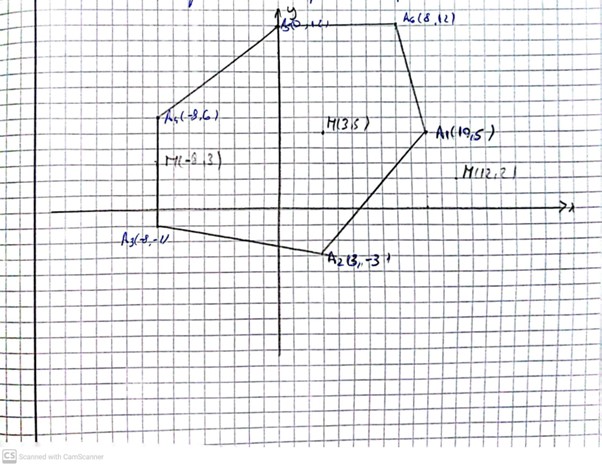 y
A5(0,12)
A6(8,12)
A4(-8,6)
M(3,5)
A1(10,5)
M(-8,3)
M(12,2)
x
A3(-8,-1)
A2(3,-3)
CS Scanned with CamScanner